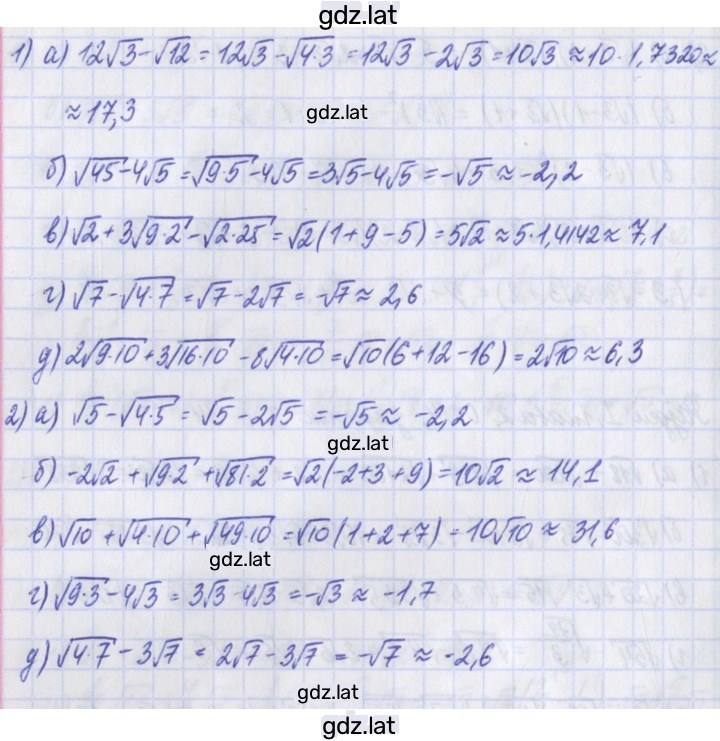 gdz.lat
1) а) 12√3-√12 = 12√3-√4·3 = 12√3-2√3 = 10√3 ≈ 10·1,7320 ≈
≈ 17,3
gdz.lat
б) √45-4√5 = √9·5-4√5 = 3√5-4√5 = -√5 ≈ -2,2
в) √2+3√9·2-√2·25 = √2(1+9-5) = 5√2 ≈ 5·1,4142 ≈ 7,1
г) √7-√4·7 = √7-2√7 = -√7 ≈ 2,6
д) 2√9·10+3√16·10-8√4·10 = √10(6+12-16) = 2√10 ≈ 6,3
2) а) √5-√4·5 = √5-2√5 = -√5 ≈ -2,2
gdz.lat
б) -2√2+√9·2+√81·2 = √2(-2+3+9) = 10√2 ≈ 14,1
в) √10+√4·10+√49·10 = √10(1+2+7) = 10√10 ≈ 31,6
gdz.lat
г) √9·3-4√3 = 3√3-4√3 = -√3 ≈ -1,7
д) √4·7-3√7 = 2√7-3√7 = -√7 ≈ -2,6
gdz.lat
gdz.lat